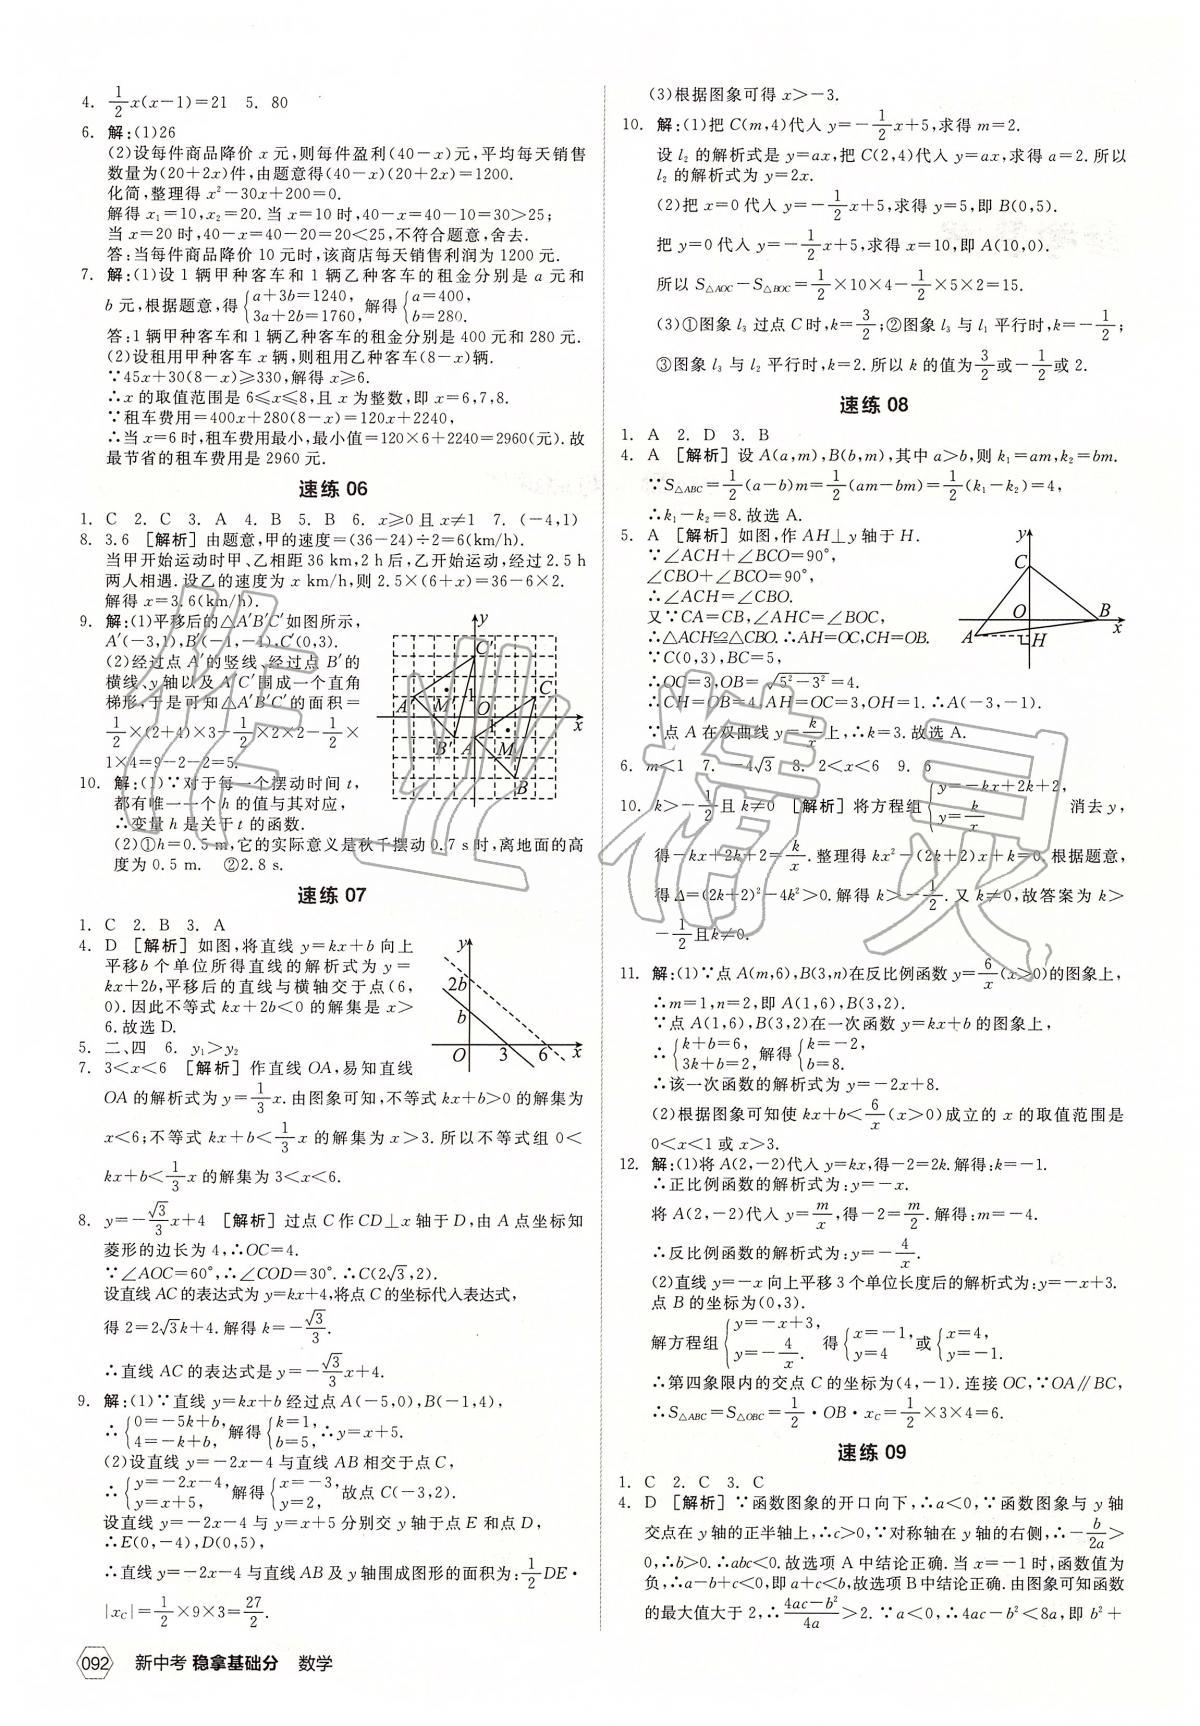 4. 1/2x(x-1)=21 5. 80
6. 解:(1)26
(2)设每件商品降价 x 元,则每件盈利(40-x)元,平均每天销售
数量为(20+2x)件,由题意得(40-x)(20+2x)=1200.
化简,整理得 x²-30x+200=0.
解得 x₁=10,x₂=20.当 x=10 时,40-x=40-10=30>25;
当 x=20 时,40-x=40-20=20<25,不符合题意,舍去.
答:当每件商品降价 10 元时,该商店每天销售利润为 1200 元.
7. 解:(1)设 1 辆甲种客车和 1 辆乙种客车的租金分别是 a 元和
b 元,根据题意,得{a+3b=1240, 3a+2b=1760,解得{a=400, b=280.
答:1 辆甲种客车和 1 辆乙种客车的租金分别是 400 元和 280 元.
(2)设租用甲种客车 x 辆,则租用乙种客车(8-x)辆.
∵45x+30(8-x)≥330,解得 x≥6.
∴x 的取值范围是 6≤x≤8,且 x 为整数,即 x=6,7,8.
∵租车费用=400x+280(8-x)=120x+2240,
∴当 x=6 时,租车费用最小,最小值=120×6+2240=2960(元).故
最节省的租车费用是 2960 元.
速练 06
1. C 2. C 3. A 4. B 5. B 6. x≥0 且 x≠1 7. (-4,1)
8. 3.6 [解析] 由题意,甲的速度=(36-24)÷2=6(km/h).
当甲开始运动时甲、乙相距 36 km,2 h 后,乙开始运动,经过 2.5 h
两人相遇.设乙的速度为 x km/h,则 2.5×(6+x)=36-6×2.
解得 x=3.6(km/h).
9. 解:(1)平移后的△A'B'C'如图所示,
A'(-3,1),B'(-1,-1),C'(0,3).
(2)经过点 A'的竖线、经过点 B'的
横线、y 轴以及 A'C'围成一个直角
梯形,于是可知△A'B'C'的面积=
1/2×(2+4)×3-1/2×2×2-1/2×
1×4=9-2-2=5.
y
C'
A'
M'
1
C
O
1
x
B'
A
M
B
10. 解:(1)∵对于每一个摆动时间 t,
都有唯一一个 h 的值与其对应,
∴变量 h 是关于 t 的函数.
(2)①h=0.5 m,它的实际意义是秋千摆动 0.7 s 时,离地面的高
度为 0.5 m. ②2.8 s.
速练 07
1. C 2. B 3. A
4. D [解析] 如图,将直线 y=kx+b 向上
平移 b 个单位所得直线的解析式为 y=
kx+2b,平移后的直线与横轴交于点(6,
0).因此不等式 kx+2b<0 的解集是 x>
6.故选 D.
y
2b
b
O
3
6
x
5. 二、四 6. y₁>y₂
7. 3<x<6 [解析] 作直线 OA,易知直线
OA 的解析式为 y=1/3x.由图象可知,不等式 kx+b>0 的解集为
x<6;不等式 kx+b<1/3x 的解集为 x>3.所以不等式组 0<
kx+b<1/3x 的解集为 3<x<6.
8. y=-√3/3x+4 [解析] 过点 C 作 CD⊥x 轴于 D,由 A 点坐标知
菱形的边长为 4,∴OC=4.
∵∠AOC=60°,∴∠COD=30°.∴C(2√3,2).
设直线 AC 的表达式为 y=kx+4,将点 C 的坐标代入表达式,
得 2=2√3k+4.解得 k=-√3/3.
∴直线 AC 的表达式是 y=-√3/3x+4.
9. 解:(1)∵直线 y=kx+b 经过点 A(-5,0),B(-1,4),
∴{0=-5k+b, 4=-k+b,解得{k=1, b=5,∴y=x+5.
(2)设直线 y=-2x-4 与直线 AB 相交于点 C,
∴{y=-2x-4, y=x+5,解得{x=-3, y=2,故点 C(-3,2).
设直线 y=-2x-4 与 y=x+5 分别交 y 轴于点 E 和点 D,
∴E(0,-4),D(0,5),
∴直线 y=-2x-4 与直线 AB 及 y 轴围成图形的面积为:1/2DE·
|x_C|=1/2×9×3=27/2.
(3)根据图象可得 x>-3.
10. 解:(1)把 C(m,4)代入 y=-1/2x+5,求得 m=2.
设 l₂ 的解析式是 y=ax,把 C(2,4)代入 y=ax,求得 a=2.所以
l₂ 的解析式为 y=2x.
(2)把 x=0 代入 y=-1/2x+5,求得 y=5,即 B(0,5).
把 y=0 代入 y=-1/2x+5,求得 x=10,即 A(10,0).
所以 S△AOC-S△BOC=1/2×10×4-1/2×5×2=15.
(3)①图象 l₃ 过点 C 时,k=3/2;②图象 l₃ 与 l₁ 平行时,k=-1/2;
③图象 l₃ 与 l₂ 平行时,k=2.所以 k 的值为3/2或-1/2或 2.
速练 08
1. A 2. D 3. B
4. A [解析] 设 A(a,m),B(b,m),其中 a>b,则 k₁=am,k₂=bm.
∵S△ABC=1/2(a-b)m=1/2(am-bm)=1/2(k₁-k₂)=4,
∴k₁-k₂=8.故选 A.
5. A [解析] 如图,作 AH⊥y 轴于 H.
∵∠ACH+∠BCO=90°,
∠CBO+∠BCO=90°,
∴∠ACH=∠CBO.
又∵CA=CB,∠AHC=∠BOC,
∴△ACH≌△CBO.∴AH=OC,CH=OB.
∵C(0,3),BC=5,
∴OC=3,OB=√5²-3²=4.
∴CH=OB=4,AH=OC=3,OH=1.∴A(-3,-1).
∵点 A 在双曲线 y=k/x上,∴k=3.故选 A.
y
C
O
B
A
H
x
6. m<1 7. -4√3 8. 2<x<6 9. 6
10. k>-1/2且 k≠0 [解析] 将方程组{y=-kx+2k+2, y=k/x 消去 y,
得-kx+2k+2=k/x.整理得 kx²-(2k+2)x+k=0.根据题意,
得 Δ=(2k+2)²-4k²>0.解得 k>-1/2.又 k≠0,故答案为 k>
-1/2且k≠0.
11. 解:(1)∵点 A(m,6),B(3,n)在反比例函数 y=6/x(x>0)的图象上,
∴m=1,n=2,即 A(1,6),B(3,2).
∵点 A(1,6),B(3,2)在一次函数 y=kx+b 的图象上,
∴{k+b=6, 3k+b=2,解得{k=-2, b=8.
∴该一次函数的解析式为 y=-2x+8.
(2)根据图象可知使 kx+b<6/x(x>0)成立的 x 的取值范围是
0<x<1 或 x>3.
12. 解:(1)将 A(2,-2)代入 y=kx,得-2=2k.解得:k=-1.
∴正比例函数的解析式为:y=-x.
将 A(2,-2)代入 y=m/x,得-2=m/2.解得:m=-4.
∴反比例函数的解析式为:y=-4/x.
(2)直线 y=-x 向上平移 3 个单位长度后的解析式为:y=-x+3.
点 B 的坐标为(0,3).
解方程组{y=-x+3, y=-4/x. 得{x=-1, y=4 或{x=4, y=-1.
∴第四象限内的交点 C 的坐标为(4,-1).连接 OC,∵OA∥BC,
∴S△ABC=S△OBC=1/2·OB·x_C=1/2×3×4=6.
速练 09
1. C 2. C 3. C
4. D [解析] ∵函数图象的开口向下,∴a<0,∵函数图象与 y 轴
交点在 y 轴的正半轴上,∴c>0,∵对称轴在 y 轴的右侧,∴-b/2a>
0,∴b>0.∴abc<0.故选项 A 中结论正确.当 x=-1 时,函数值为
负,∴a-b+c<0,即 a+c<b,故选项 B 中结论正确.由图象可知函数
的最大值大于 2,∴4ac-b²/4a>2.∵a<0,∴4ac-b²<8a,即 b²+
092 新中考 稳拿基础分 数学
作业精灵